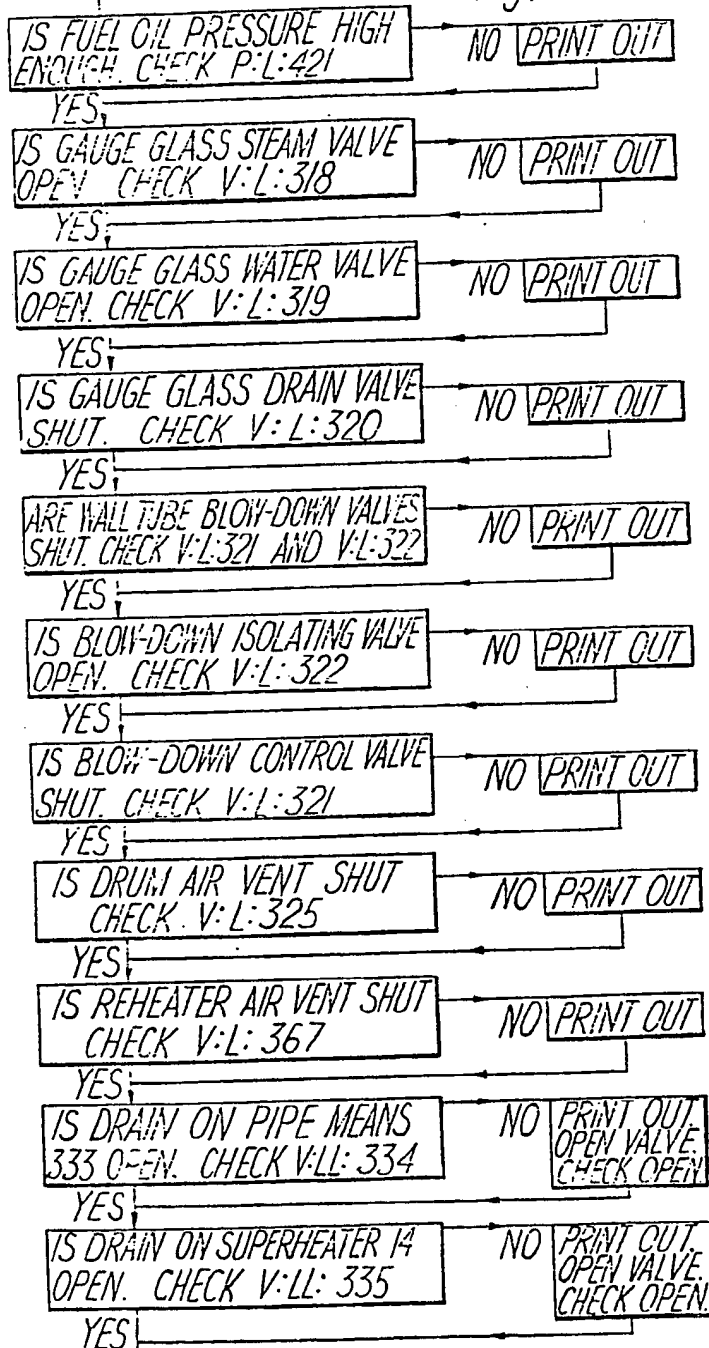 IS FUEL OIL PRESSURE HIGH
ENOUGH. CHECK P:L:421
NO PRINT OUT
YES
IS GAUGE GLASS STEAM VALVE
OPEN CHECK V:L:318
NO PRINT OUT
YES
IS GAUGE GLASS WATER VALVE
OPEN. CHECK V:L:319
NO PRINT OUT
YES
IS GAUGE GLASS DRAIN VALVE
SHUT. CHECK V:L:320
NO PRINT OUT
YES
ARE WALL TUBE BLOW-DOWN VALVES
SHUT. CHECK V:L:321 AND V:L:322
NO PRINT OUT
YES
IS BLOW-DOWN ISOLATING VALVE
OPEN. CHECK V:L:322
NO PRINT OUT
YES
IS BLOW-DOWN CONTROL VALVE
SHUT. CHECK V:L:321
NO PRINT OUT
YES
IS DRUM AIR VENT SHUT
CHECK V:L:325
NO PRINT OUT
YES
IS REHEATER AIR VENT SHUT
CHECK V:L:367
NO PRINT OUT
YES
IS DRAIN ON PIPE MEANS
333 OPEN. CHECK V:LL:334
NO PRINT OUT.
OPEN VALVE.
CHECK OPEN.
YES
IS DRAIN ON SUPERHEATER 14
OPEN. CHECK V:LL:335
NO PRINT OUT.
OPEN VALVE.
CHECK OPEN.
YES